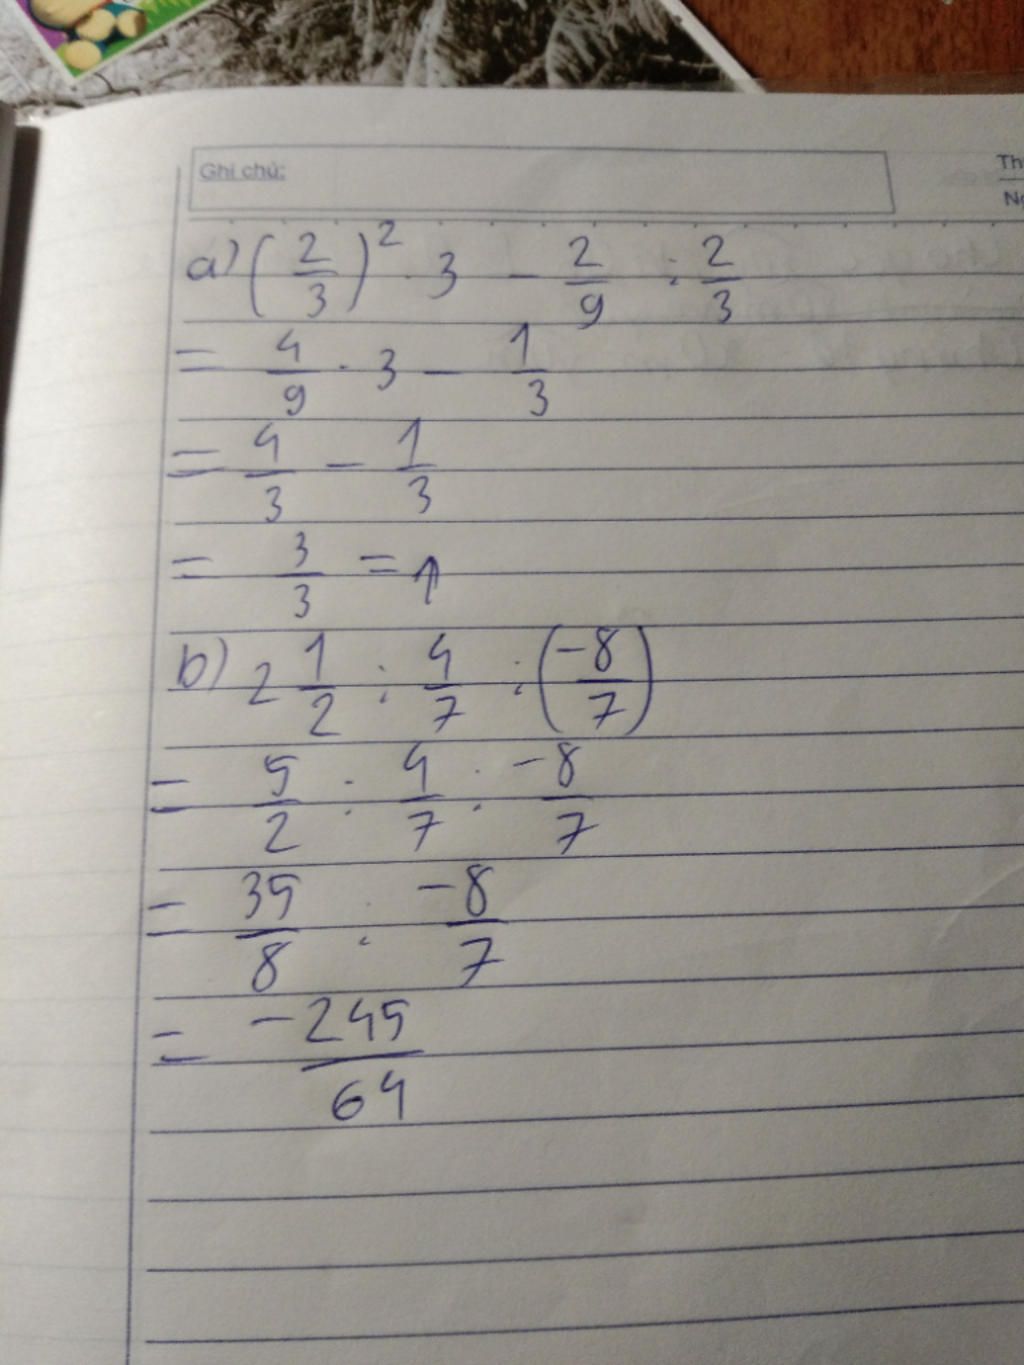 Ghi chú:
Th
Ng
a) (2/3)² · 3 - 2/9 : 2/3
= 4/9 · 3 - 1/3
= 4/3 - 1/3
= 3/3 = 1
b) 2 1/2 : 4/7 : (-8/7)
= 5/2 : 4/7 : -8/7
= 35/8 : -8/7
= -245/64